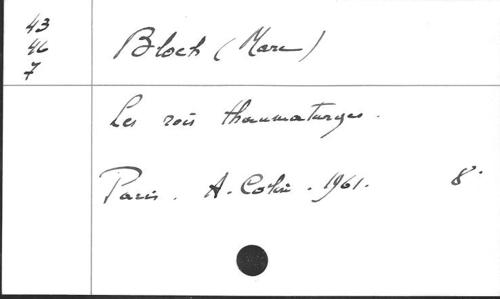 43
46
7
Bloch (Marc)
Les rois thaumaturges.
Paris. A. Colin. 1961. 8°